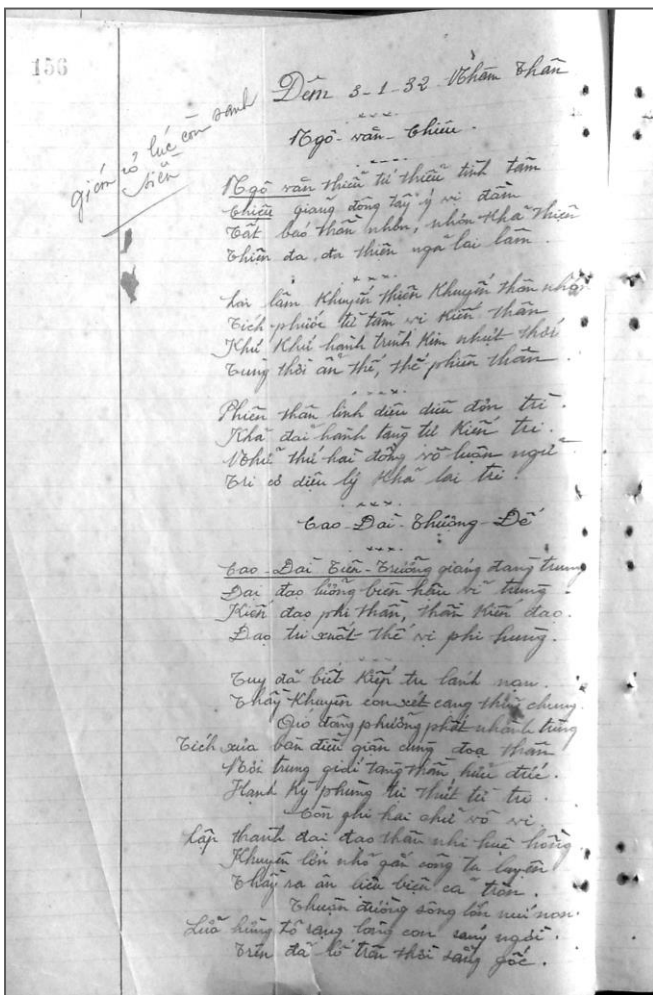 156
Đêm 3-1-32 Nhâm Thân
giáng có lúc còn sanh
tiền
Ngô-văn-Chiêu.
Ngô văn thiếu tử thiếu tinh tâm
Chiêu giang đông tây ý vi đàm
Tất báo thân nhơn, nhơn khả thiện
Thiện đa, đa thiện ngã lai lâm.
Lai lâm khuyến thiện khuyến thân nhơn
Tích phước từ tâm vi kiến thân
Khứ khứ hành trình kim nhựt thời
Tùng thời ẩn thế, thế phiền thân.
Phiền thân linh diệu diệu đơn trì.
Khả đại hành tàng tử kiến tri.
Như thử hai đồng vô luận ngữ
Tri cơ diệu lý khả lai tri.
Cao-Đài-Thượng-Đế
Cao-Đài-Tiên-Trưởng giáng đàng trung
Đại đạo lường biên hậu vi trung.
Kiến đạo phi thân, thân kiến đạo.
Đạo tu xuất thế vị phi hùng.
Tuy đã biết kiếp tu lánh nạn.
Thầy khuyên con xét cang thủy chung.
Gió đông phưởng phất nhành tùng
Tích xưa bàn điếu gian cùng đoạ thân
Nơi trung giái tàng thân hữu đức.
Hạnh kỳ phùng tri thức từ tri.
Còn ghi hai chữ vô vi.
Lập thành đại đạo thân nhi huệ hồng
Khuyên lớn nhỏ gắn công tu luyện
Thầy ra ân liêu biên cả trơn.
Thuận đường sông lớn núi non.
Lửa hừng tỏ rạng lòng con sáng ngời.
Trên đã lố trăn thời sằng gốc.